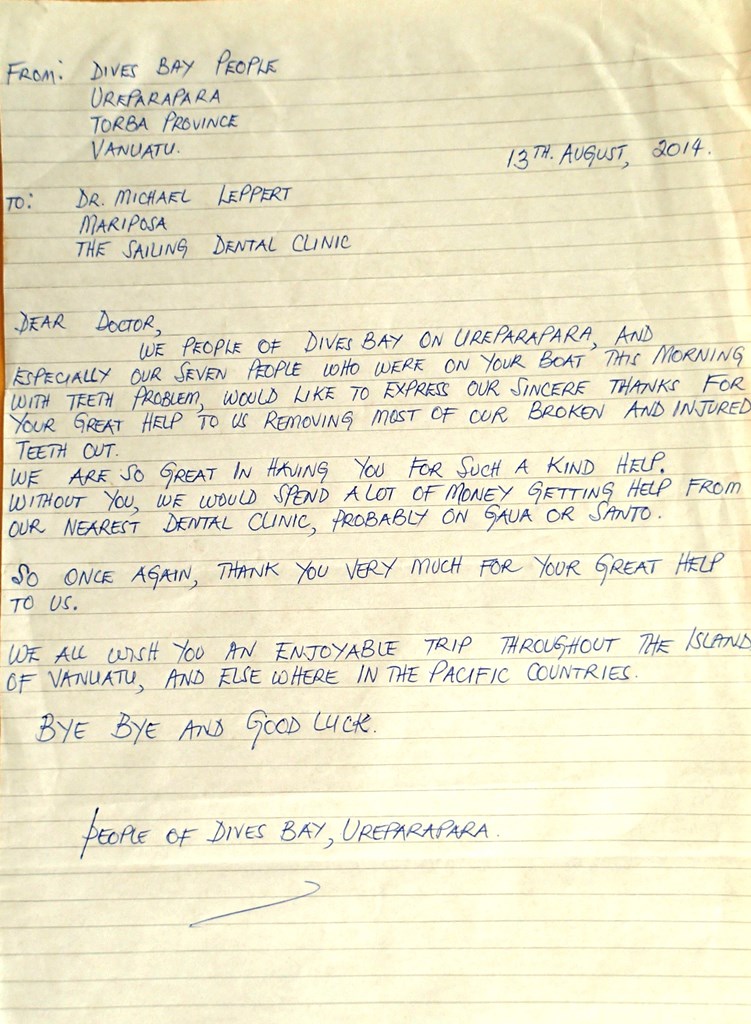 FROM: DIVES BAY PEOPLE
UREPARAPARA
TORBA PROVINCE
VANUATU.
13TH. AUGUST, 2014.
TO: DR. MICHAEL LEPPERT
MARIPOSA
THE SAILING DENTAL CLINIC
DEAR DOCTOR,
WE PEOPLE OF DIVES BAY ON UREPARAPARA, AND
ESPECIALLY OUR SEVEN PEOPLE WHO WERE ON YOUR BOAT THIS MORNING
WITH TEETH PROBLEM, WOULD LIKE TO EXPRESS OUR SINCERE THANKS FOR
YOUR GREAT HELP TO US REMOVING MOST OF OUR BROKEN AND INJURED
TEETH OUT.
WE ARE SO GREAT IN HAVING YOU FOR SUCH A KIND HELP.
WITHOUT YOU, WE WOULD SPEND A LOT OF MONEY GETTING HELP FROM
OUR NEAREST DENTAL CLINIC, PROBABLY ON GAUA OR SANTO.
SO ONCE AGAIN, THANK YOU VERY MUCH FOR YOUR GREAT HELP
TO US.
WE ALL WISH YOU AN ENJOYABLE TRIP THROUGHOUT THE ISLAND
OF VANUATU, AND ELSE WHERE IN THE PACIFIC COUNTRIES.
BYE BYE AND GOOD LUCK.
PEOPLE OF DIVES BAY, UREPARAPARA.